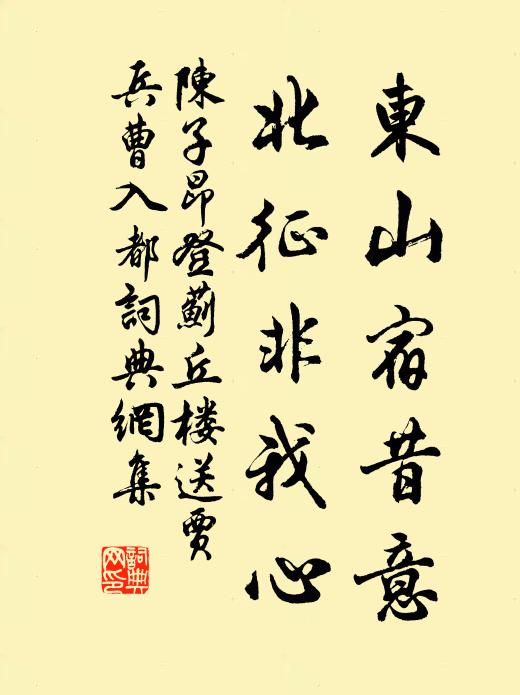 東山宿昔意
北征非我心
陳子昂登薊丘楼送賈
兵曹入都詞典網集
詞典
网印